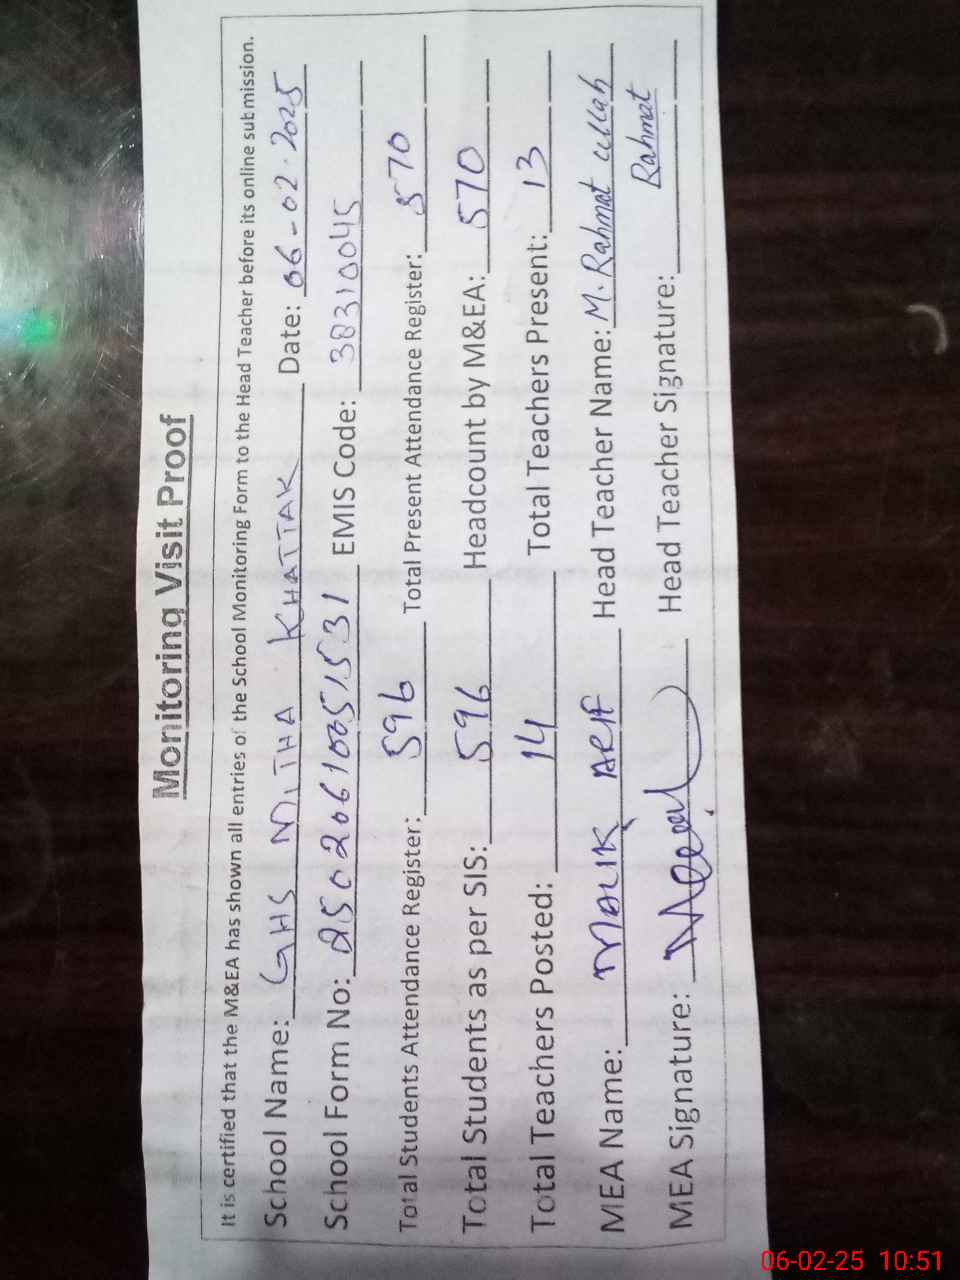 Monitoring Visit Proof
It is certified that the M&EA has shown all entries of the School Monitoring Form to the Head Teacher before its online submission.
School Name: GHS MITHA KHATTAK Date: 06-02.2025
School Form No: 25020610051531 EMIS Code: 38310045
Total Students Attendance Register: 596 Total Present Attendance Register: 570
Total Students as per SIS: 596 Headcount by M&EA: 570
Total Teachers Posted: 14 Total Teachers Present: 13
MEA Name: MALIK ARIF Head Teacher Name: M. Rahmat ullah
MEA Signature: Head Teacher Signature: Rahmat
06-02-25 10:51